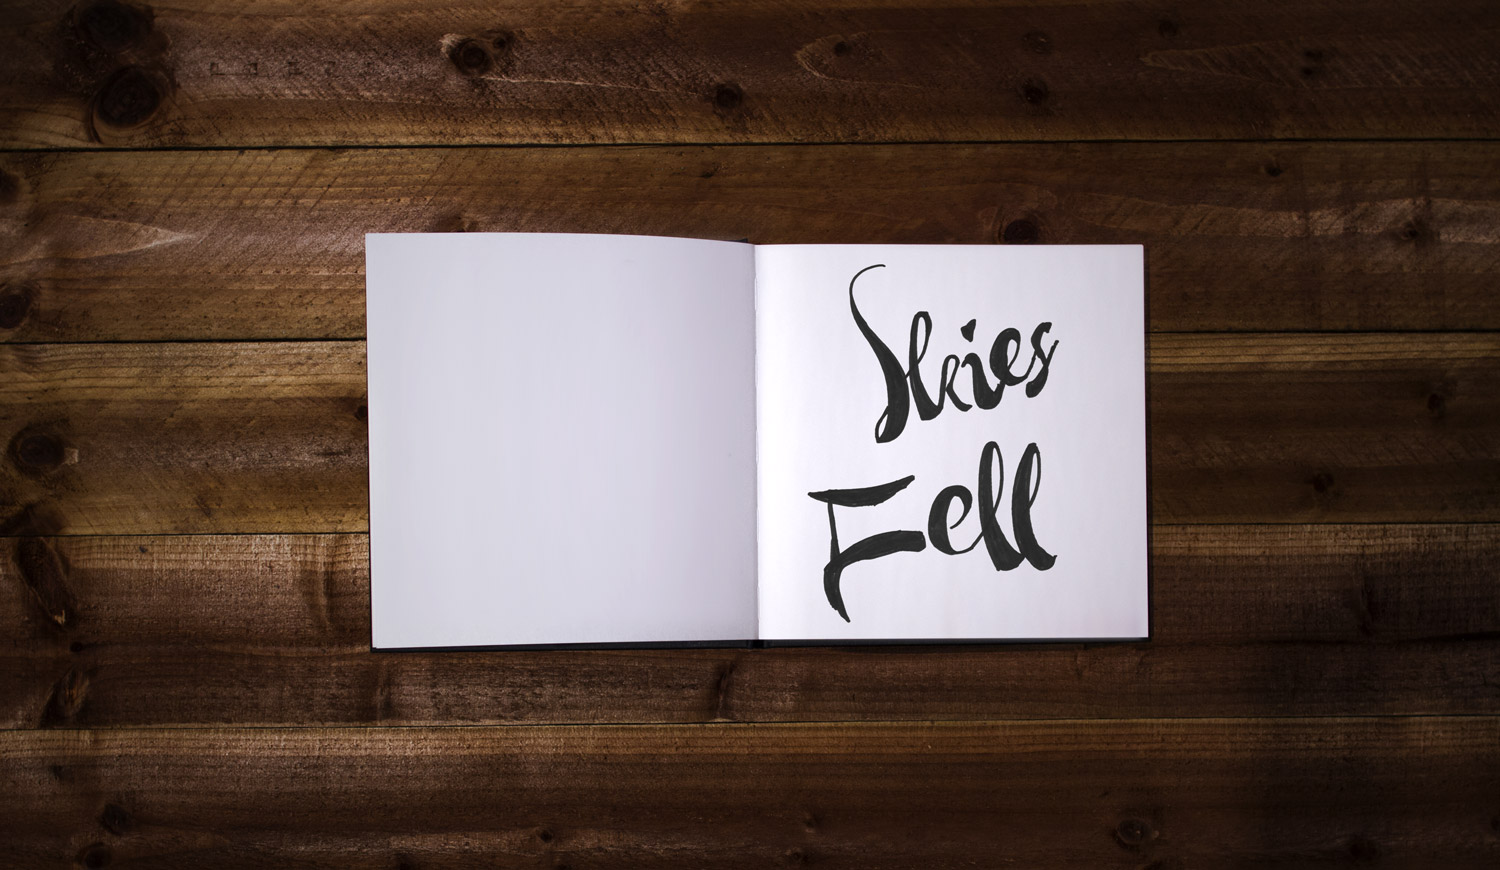 Skies
Fell